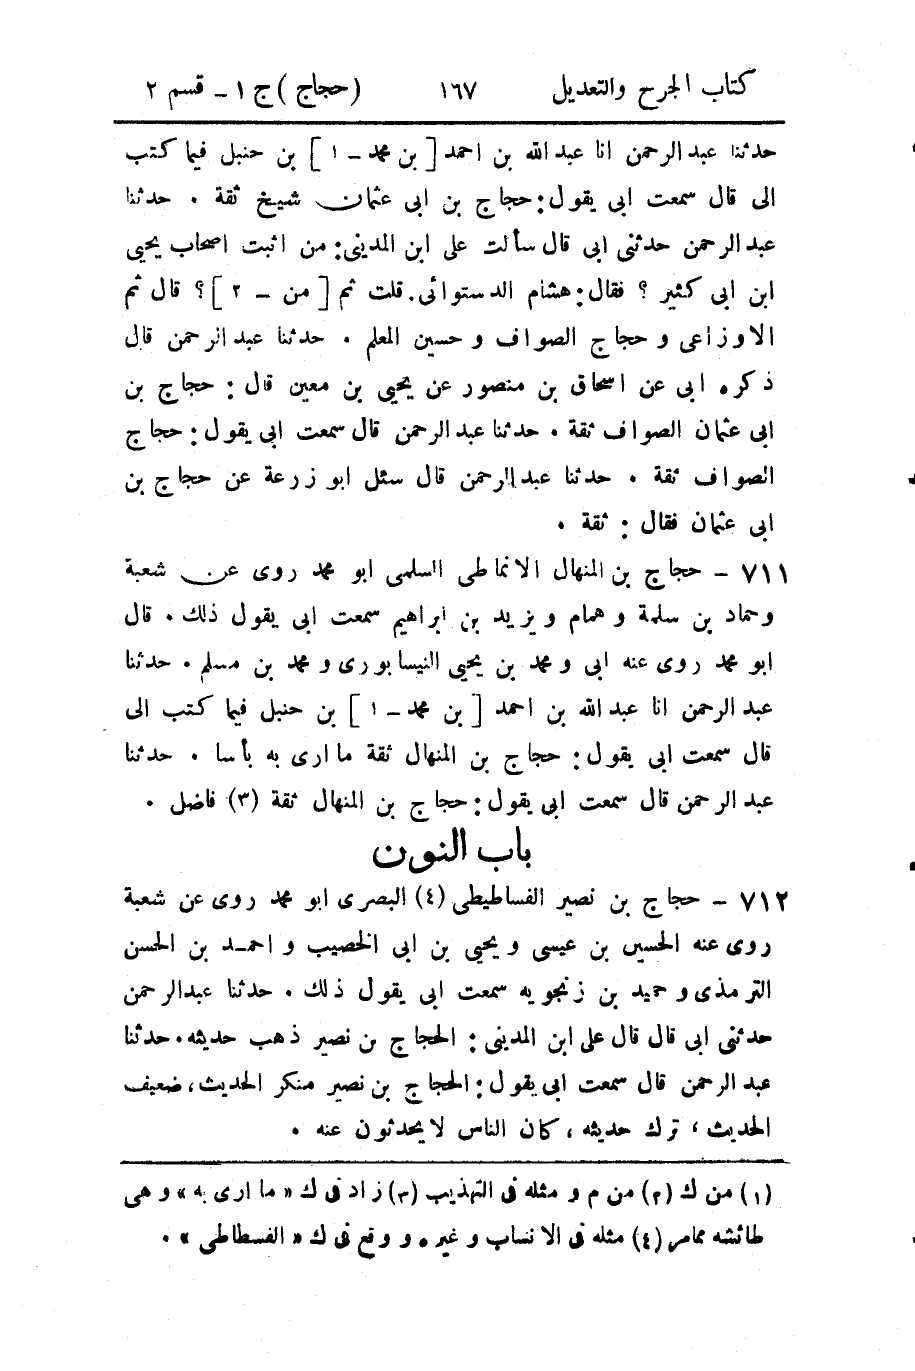 كتاب الجرح والتعديل ١٦٧ (حجاج) ج ١ - قسم ٢
حدثنا عبد الرحمن انا عبد الله بن احمد [ بن محمد - ١ ] بن حنبل فيما كتب
الى قال سمعت ابى يقول: حجاج بن ابى عثمان شيخ ثقة . حدثنا
عبد الرحمن حدثنى ابى قال سألت على ابن المدينى: من اثبت اصحاب يحيى
ابن ابى كثير ؟ فقال: هشام الدستوائى. قلت ثم [ من - ٢ ] ؟ قال ثم
الاوزاعى و حجاج الصواف و حسين المعلم . حدثنا عبد الرحمن قال
ذكره ابى عن اسحاق بن منصور عن يحيى بن معين قال : حجاج بن
ابى عثمان الصواف ثقة . حدثنا عبد الرحمن قال سمعت ابى يقول: حجاج
الصواف ثقة . حدثنا عبد الرحمن قال سئل ابو زرعة عن حجاج بن
ابى عثمان فقال : ثقة .
٧١١ - حجاج بن المنهال الانماطى السلمى ابو محمد روى عن شعبة
وحماد بن سلمة و همام و يزيد بن ابراهيم سمعت ابى يقول ذلك . قال
ابو محمد روى عنه ابى و محمد بن يحيى النيسابورى و محمد بن مسلم . حدثنا
عبد الرحمن انا عبد الله بن احمد [ بن محمد - ١ ] بن حنبل فيما كتب الى
قال سمعت ابى يقول: حجاج بن المنهال ثقة ما ارى به بأسا . حدثنا
عبد الرحمن قال سمعت ابى يقول: حجاج بن المنهال ثقة (٣) فاضل .
باب النون
٧١٢ - حجاج بن نصير الفساطيطى (٤) البصرى ابو محمد روى عن شعبة
روى عنه الحسين بن عيسى و يحيى بن ابى الخصيب و احمد بن الحسن
الترمذى و حميد بن زنجويه سمعت ابى يقول ذلك . حدثنا عبد الرحمن
حدثنى ابى قال قال على ابن المدينى : الحجاج بن نصير ذهب حديثه . حدثنا
عبد الرحمن قال سمعت ابى يقول: الحجاج بن نصير منكر الحديث، ضعيف
الحديث ، ترك حديثه ، كان الناس لا يحدثون عنه .
(١) من ك (٢) من م و مثله فى التهذيب (٣) زاد فى ك « ما ارى به » و هى
طائشه مما مر (٤) مثله فى الانساب و غيره و وقع فى ك « الفسطاطى » .